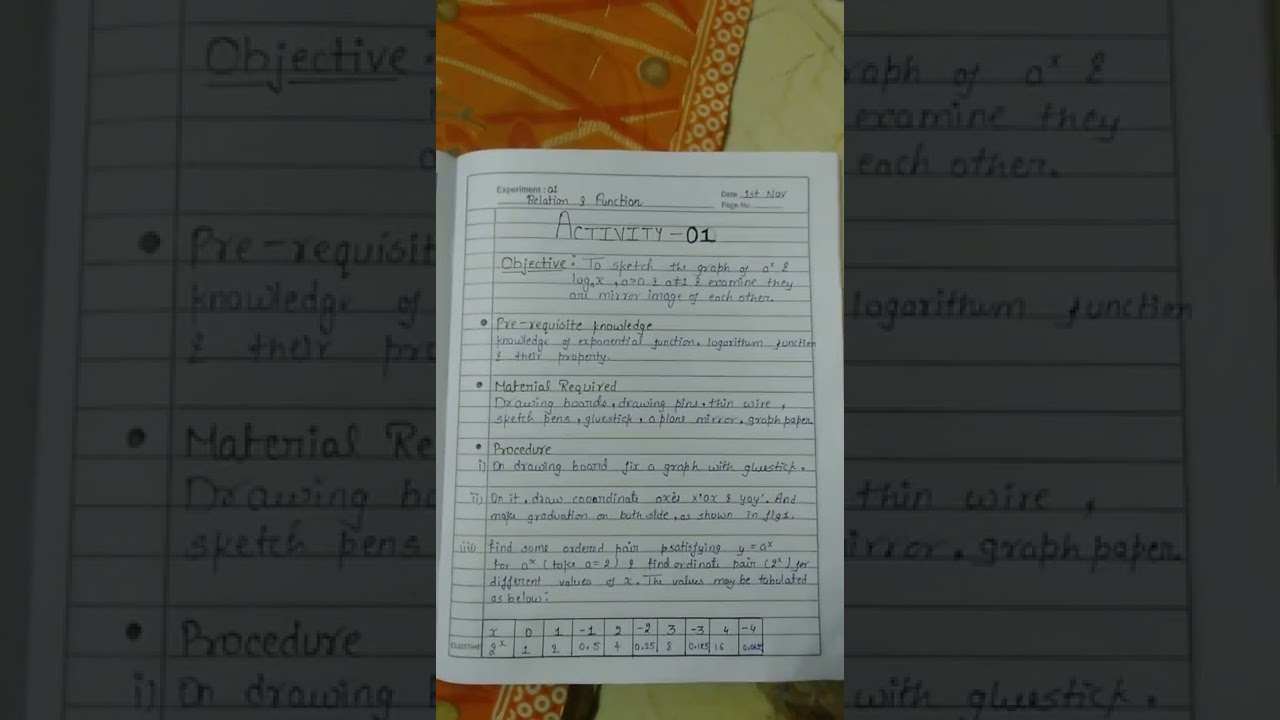 Experiment : 01
Date 1st Nov
Relation & Function
Page No.
ACTIVITY - 01
Objective : To sketch the graph of aˣ &
logₐx , a>0 & a≠1 & examine they
are mirror image of each other.
• Pre-requisite knowledge
knowledge of exponential function, logarithum function
& their property.
• Material Required
Drawing boards, drawing pins, thin wire,
sketch pens, gluestick, a plane mirror, graph paper.
• Procedure
i) On drawing board fix a graph with gluestick.
ii) On it, draw cooordinate axes x'ox & yoy'. And
make graduation on both side, as shown in fig1.
iii) Find some ordered pair satisfying y = aˣ
for aˣ (take a = 2) & find ordinate pair (2ˣ) for
different values of x. The values may be tabulated
as below :
x 0 1 -1 2 -2 3 -3 4 -4
2ˣ 1 2 0.5 4 0.25 8 0.125 16